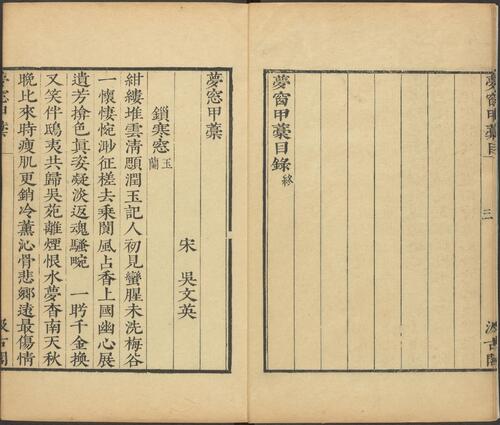 夢窗甲藁目
三
汲古閣
夢窗甲藁目錄終
夢窓甲藁
宋 吳文英
鎖寒窓 玉蘭
紺縷堆雲清顋潤玉記人初見蠻腥未洗梅谷
一懷悽惋渺征槎去乘閬風占香上國幽心展
遺芳掩色眞姿凝淡返魂騷畹 一盻千金換
又笑伴鴟夷共歸吳苑離煙恨水夢杳南天秋
晚比來時瘦肌更銷冷薰沁骨悲鄉遠最傷情
夢窓甲藁
一
汲古閣